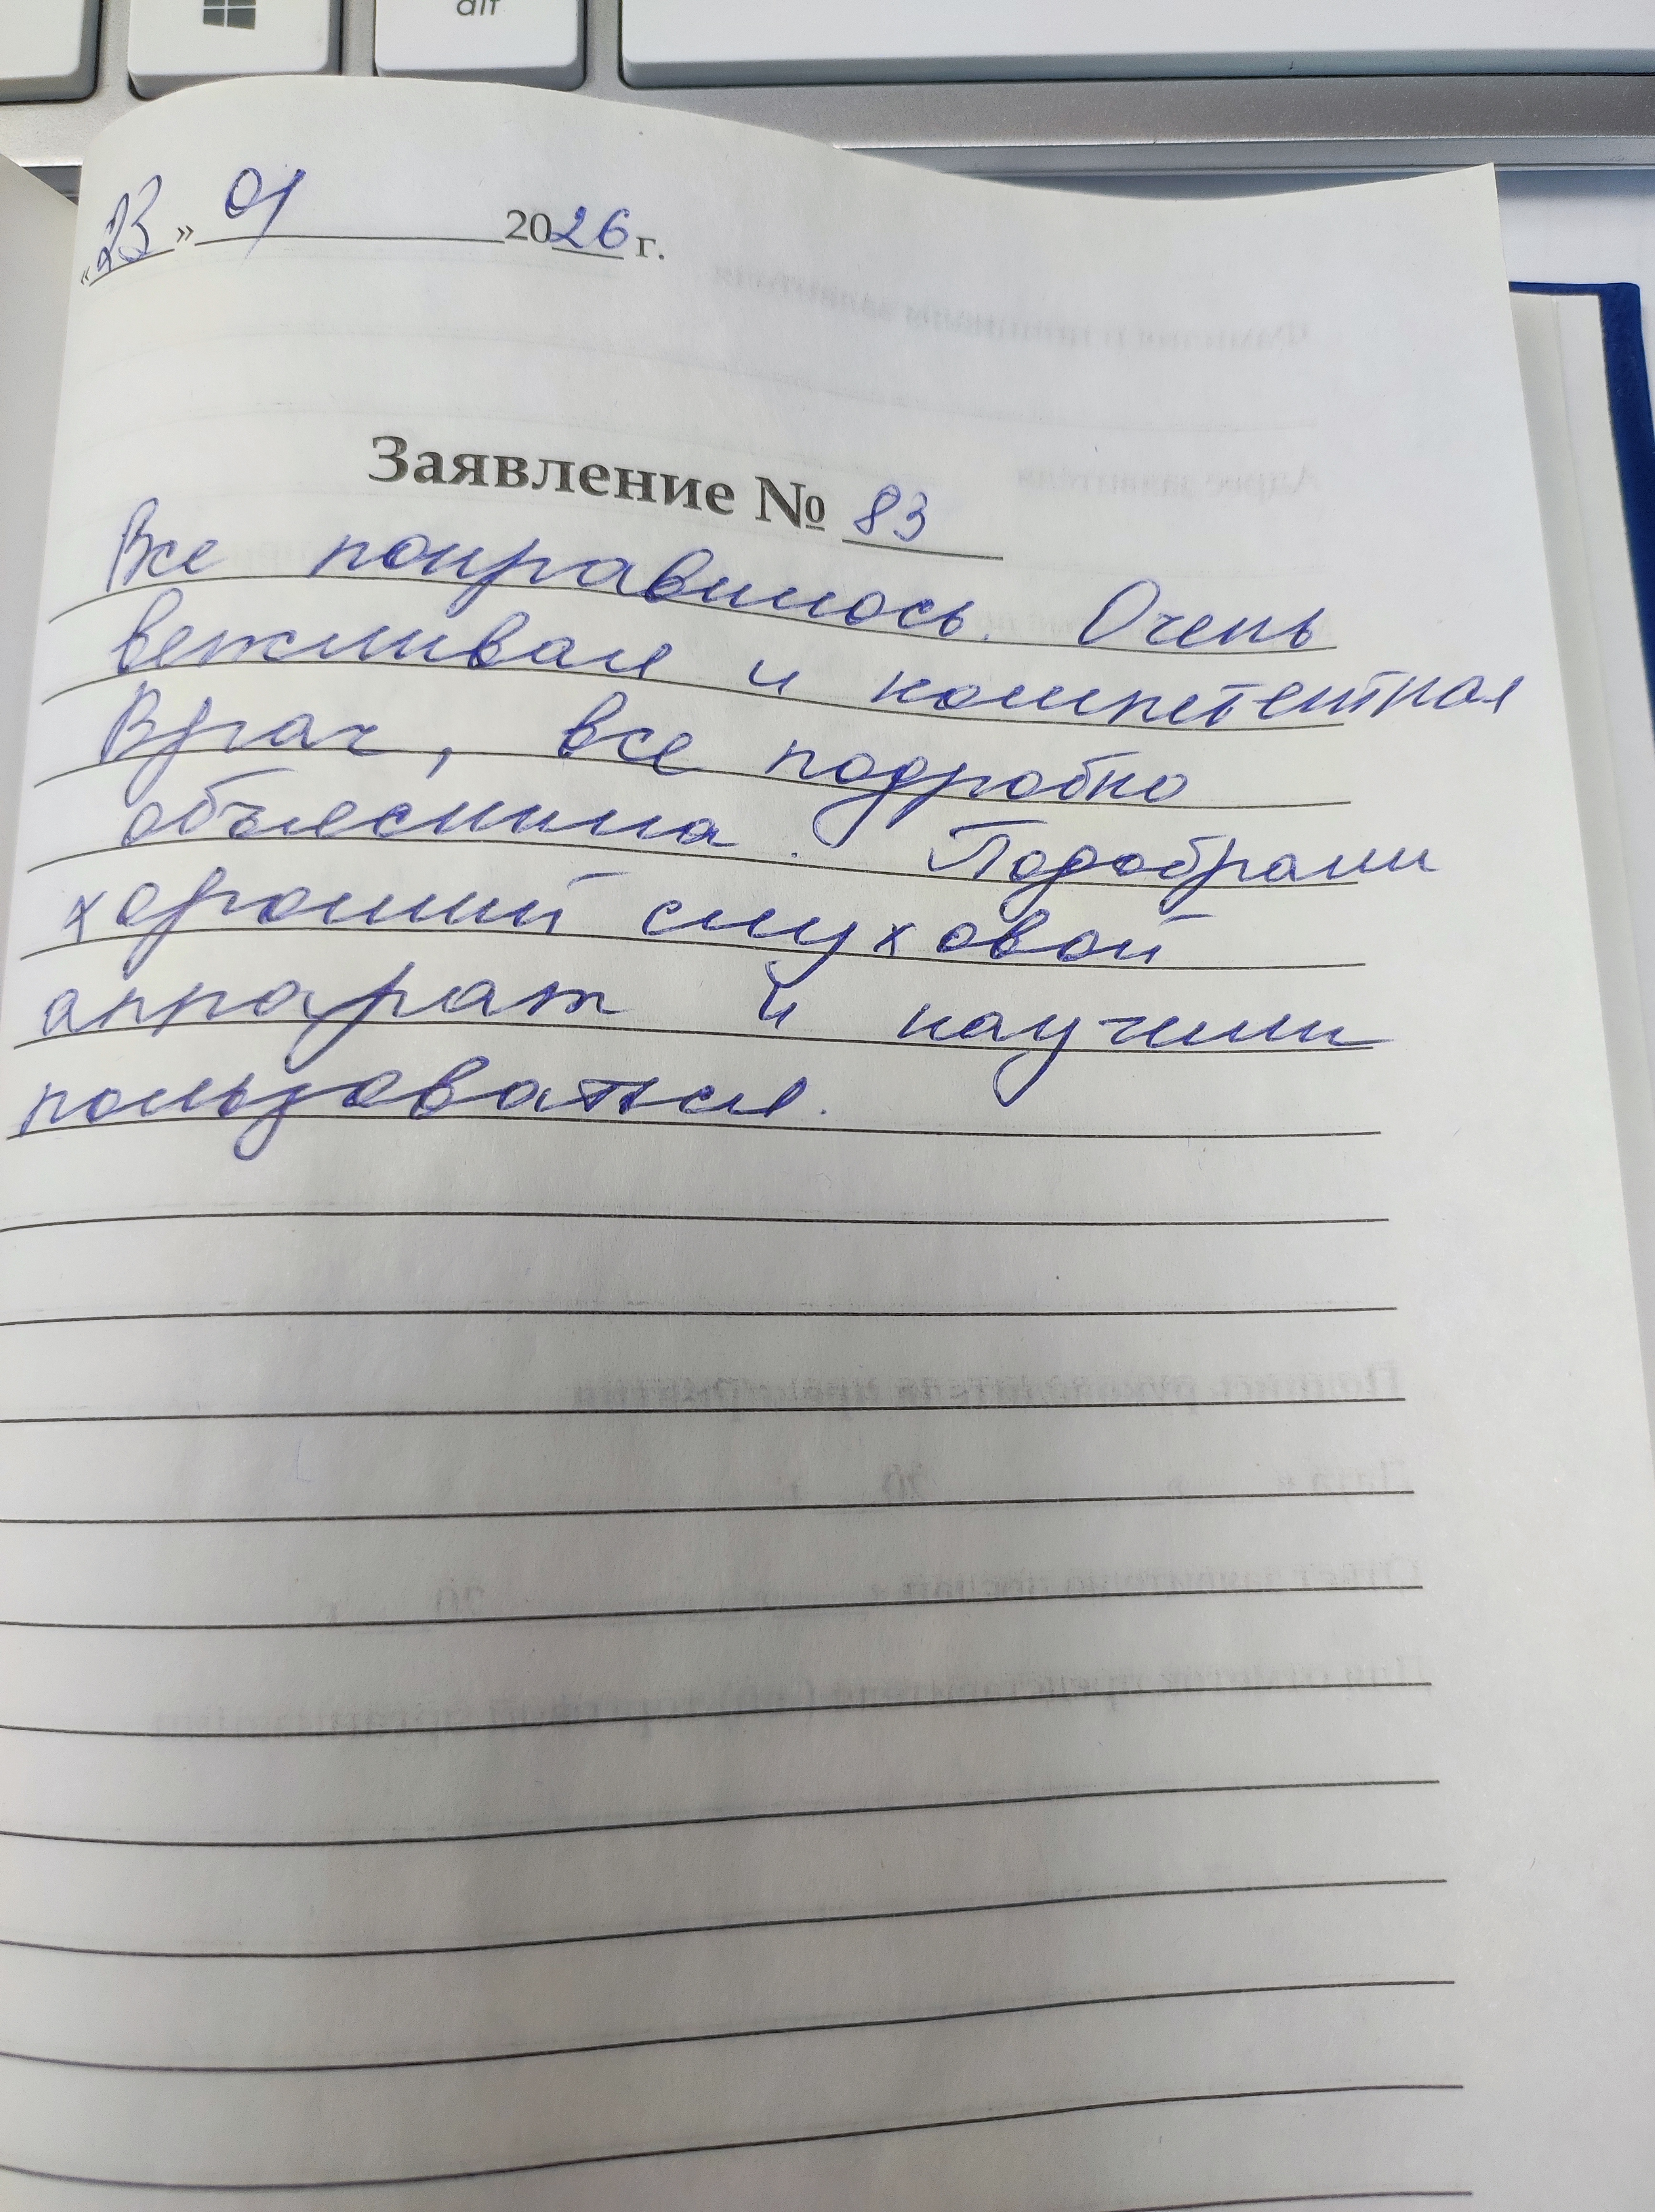 alt
«23» 01 2026 г.
Заявление № 83
Все понравилось. Очень
вежливая и компетентная
Врач, все подробно
объяснила. Подобрали
хороший слуховой
аппарат и научили
пользоваться.